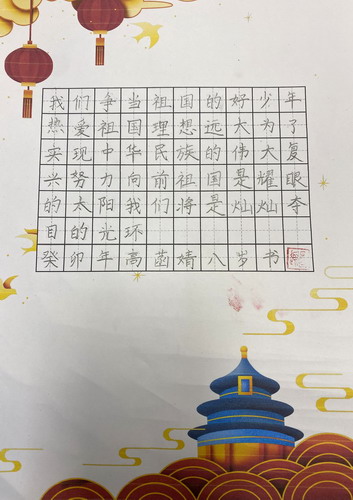 我们争当祖国的好少年
热爱祖国理想远大为了
实现中华民族的伟大复
兴努力向前祖国是耀眼
的太阳我们将是灿灿夺
目的光环
癸卯年高菡婧八岁书